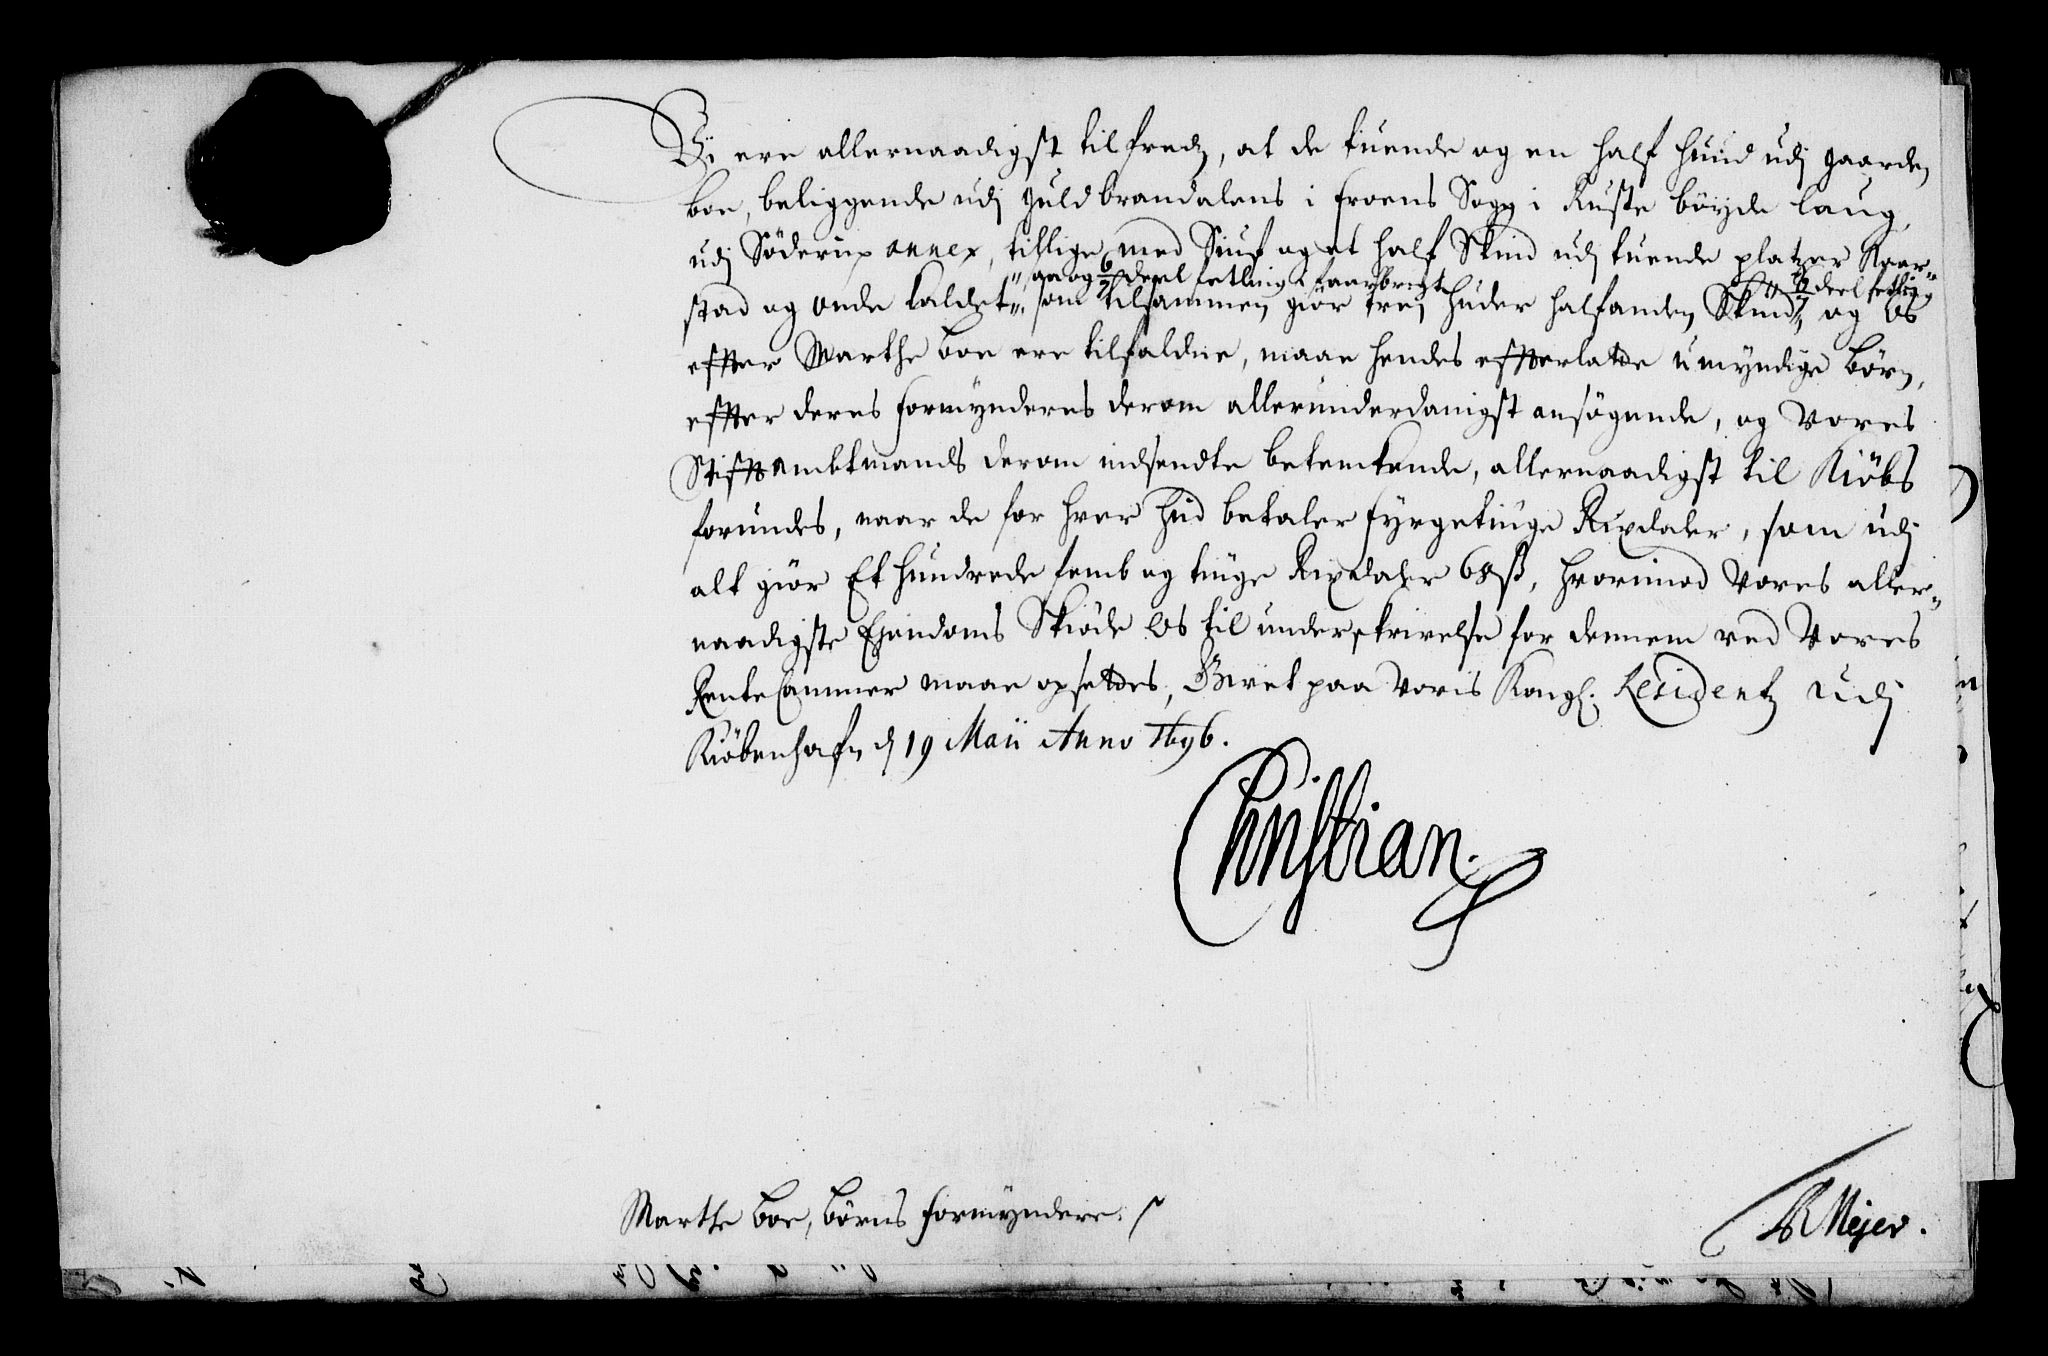 Vi ere allernaadigst tilfreds, at de tuende og en half hund udj gaarden
boe, beliggende udj Guldbrandalens i froens Sogn i Ruste böyde laug
udj Söderup annex, tillige med Siuf og et half Skind udj tuende platzer Kaar-
gaa og 6/7 deel setting i Kaarbergte
6/7 deel setting
stad og onde kaldet, som tilsammen giör trej huder halfanden Skind, og Os
effter Marthe boe ere tilfaldne, maae hendes effterlatte umyndige börn,
effter deres formynderes derom allerunderdanigst ansögende, og Vores
Stifftamktmands derom indsendte betenkende, allernaadigst til Kiöbs
forundes, naar de for hver hud betaler fyrgetiuge Rixdaler, som udj
alt giör Et hundrede femb og tiuge Rixdaler 68 ß, hvorimod Vores aller-
naadigste Ejendoms Skiöde Os til underskrivelse for dennem ved Vores
Rente Cammer maae opsettes, Givet paa Voris Kongl. Residentz udj
Kiöbenhafn d 19 Maii Anno 1696.
Christian.
Marthe boe, börns formyndere.
Meyer.